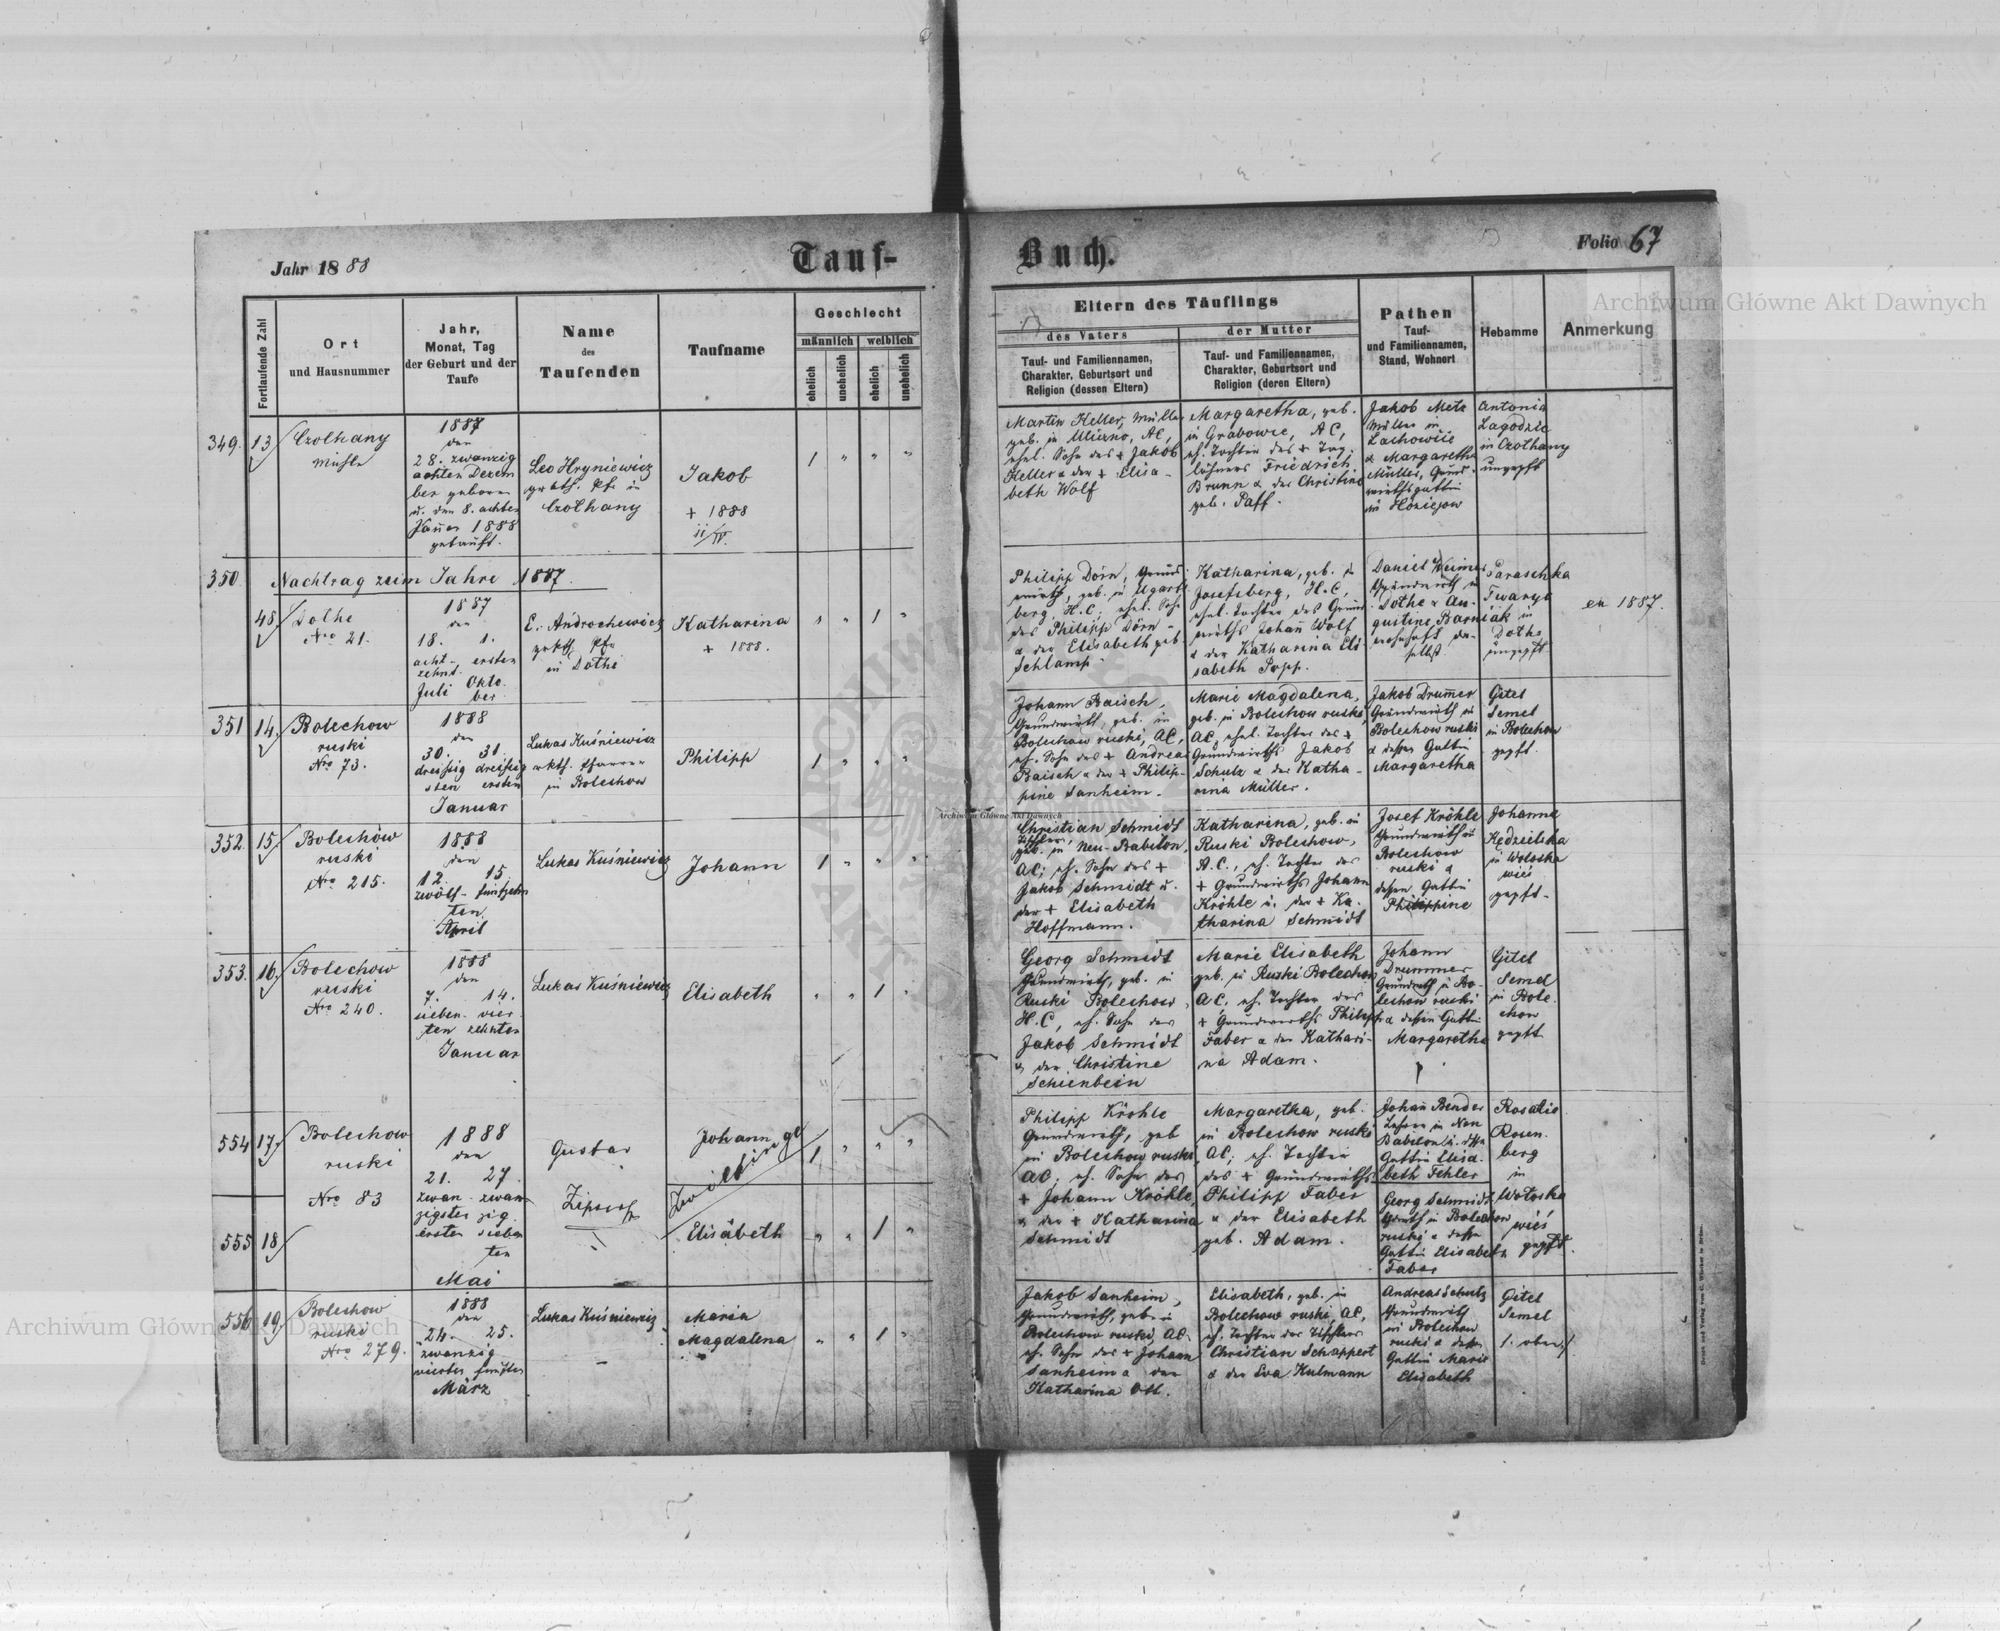 Jahr 1888
Tauf-
Buch.
Folio 67
Fortlaufende Zahl
Ort
und Hausnummer
Jahr,
Monat, Tag
der Geburt und der
Taufe
Name
des
Taufenden
Taufname
Geschlecht
männlich
weiblich
ehelich
unehelich
ehelich
unehelich
Eltern des Täuflings
des Vaters
Tauf- und Familiennamen,
Charakter, Geburtsort und
Religion (dessen Eltern)
der Mutter
Tauf- und Familiennamen,
Charakter, Geburtsort und
Religion (deren Eltern)
Pathen
Tauf-
und Familiennamen,
Stand, Wohnort
Hebamme
Anmerkung
349.
13
Czolhany
Mühle
1887
den
28. zwanzig
achten Dezem
ber geboren
u. den 8. achten
Jäner 1888
getauft.
Leo Hryniewicz
in
Czolhany
Jakob
+ 1888
1 " " "
Martin Keller, Müller
geb. in Ugartsthal AC,
ehel. Sohn des + Jakob
Keller & der + Elisa-
beth Wolf
Margaretha, geb.
in Grabowce, AC,
eh. Tochter des + Tag-
löhners Friedrich
Brunn & der Christine
geb. Paff.
Jakob Metz
Müller in
Lachowice
& Margaretha
Müller, Grund-
wirthsgattin
in
Antonia
Lagodzic
in Czolhany
ungepft
350.
Nachtrag zum Jahre 1887.
48
Dolhe
Nro 21.
1887
den
18. 1.
acht- ersten
zehnt.
Juli Okto-
ber
E. Androchowicz
grkth. Pfr
in Dolhe
Katharina
+ 1888.
" " 1 "
Philipp Dörn, Grund-
wirth, geb. in Ugarts-
berg H.C; ehel. Sohn
des Philipp Dörn
& der Elisabeth geb
Schlamp.
Katharina, geb. in
Josefsberg, H.C,
ehel. Tochter des Grund-
wirths Johann Wolf
& der Katharina Eli-
sabeth Popp.
Daniel Weimer
Grundwirth in
Dolhe & Au-
gustine
wohnhaft da-
selbst.
Paraschka
in
Dolhe
ungepft
ex 1887.
351
14.
Bolechow
ruski
Nro 73.
1888
den
30. 31.
dreissig dreissig
sten ersten
Januar
Lukas Kuśniewicz
rkth. Pfarrer
in Bolechow
Philipp
1 " " "
Johann Baisch,
Grundwirth, geb. in
Bolechow ruski, AC,
eh. Sohn des + Andreas
Baisch & der + Philip-
pine Sanheim.
Marie Magdalena,
geb. in Bolechow ruski,
AC, ehel. Tochter des +
Grundwirths Jakob
Schulz & der Katha-
rina Müller.
Jakob Drumer
Grundwirth in
Bolechow ruski
& dessen Gattin
Margaretha
Gitel
Semel
in Bolechow
gepft.
352.
15
Bolechów
ruski
Nro 215.
1888
den
12. 15.
zwölf- fünfzehn
ten
April
Lukas Kuśniewicz
Johann
1 " " "
Christian Schmidt
Tischler,
geb. in Neu-Babilon,
AC; eh. Sohn des +
Jakob Schmidt u.
der + Elisabeth
Hoffmann.
Katharina, geb. in
Ruski Bolechow,
A.C., eh. Tochter des
+ Grundwirths Johann
Kröhle u. der + Ka-
tharina Schmidt
Josef Kröhle
Grundwirth in
Bolechow
ruski &
dessen Gattin
Philippine
Johanna
Kędzielska
in Woloska
wieś
gepft.
353.
16.
Bolechow
ruski
Nro 240.
1888
den
7. 14.
sieben- vier-
ten zehnten
Januar
Lukas Kuśniewicz
Elisabeth
" " 1 "
Georg Schmidt
Grundwirth, geb. in
Ruski Bolechow,
H.C, eh. Sohn des
Jakob Schmidt
& der Christine
Schienbein
Marie Elisabeth
geb. in Ruski Bolechow
AC, eh. Tochter des
+ Grundwirths Philipp
Faber & der Kathari-
na Adam.
Johann
Drummer
Grundwirth in Bo-
lechow ruski
& dessen Gattin
Margaretha
Gitel
Semel
in Bole-
chow
gepft
554
17.
Bolechow
ruski
Nro 83
1888
den
21. 27.
zwan- zwan-
zigsten zig
ersten sieben
ten
Mai
Gustav
Zipser
Johann
Zwillinge
1 " " "
555
18
Elisabeth
" " 1 "
Philipp Kröhle
Grundwirth, geb
in Bolechow ruski,
AC; eh. Sohn des
+ Johann Kröhle,
& der + Katharina
Schmidt
Margaretha, geb.
in Bolechow ruski
AC; eh. Tochter
des + Grundwirths
Philipp Faber
& der Elisabeth
geb. Adam.
Johann Bender
Lehrer in Neu
Babilon u. dssn
Gattin Elisa-
beth Fehler
Georg Schmidt
Grwirth in Bolechow
ruski & dessen
Gattin Elisabeth
Faber
Rosalie
Rosen-
berg
in
Woloska
wieś
gepft.
556
19
Bolechow
ruski
Nro 279.
1888
den
24. 25.
zwanzig
vierten fünften
März
Lukas Kuśniewicz
Maria
Magdalena
" " 1 "
Jakob Sanheim,
Grundwirth, geb. in
Bolechow ruski, AC,
eh. Sohn des + Johann
Sanheim & der
Katharina Ott.
Elisabeth, geb. in
Bolechow ruski, AC,
eh. Tochter des Tischlers
Christian Schappert
& der Eva Kulmann
Andreas Schulz
Grundwirth
in Bolechow
ruski & dessen
Gattin Marie
Elisabeth
Gitel
Semel
s. oben
Archiwum Główne Akt Dawnych
Archiwum Główne Akt Dawnych
Archiwum Główne Akt Dawnych